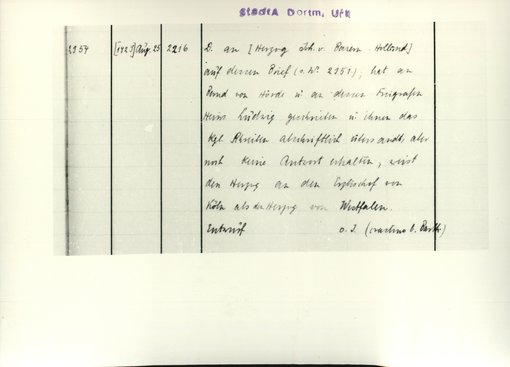 StadtA Dortm. Ufk
2954 [1425] Aug. 25 2216 D. an [Herzog Joh. v. Baiern-Holland]
auf dessen Brief (s. Nr. 2951); hat an
Bernd von Hörde u. an dessen Freigrafen
Herrn Ludwig geschrieben u. ihnen das
Kgl. Schreiben abschriftlich übersandt, aber
noch keine Antwort erhalten; weist
den Herzog an den Erzbischof von
Köln als den Herzog von Westfalen.
Entwurf o. J. (crastino b. Barth.)